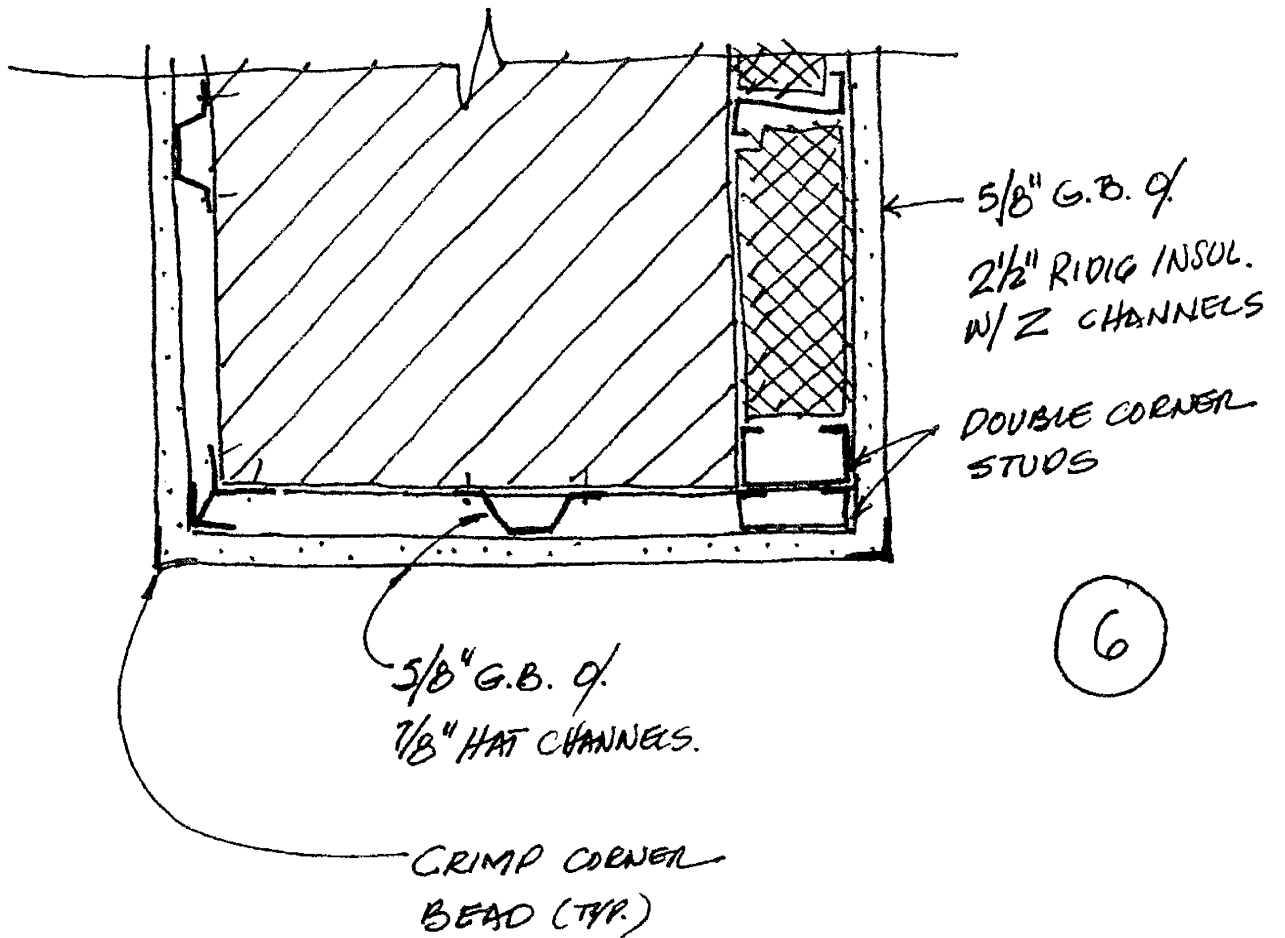 5/8" G.B. O/
2 1/2" RIDIG INSUL.
W/ Z CHANNELS
DOUBLE CORNER
STUDS
6
5/8" G.B. O/
7/8" HAT CHANNELS.
CRIMP CORNER
BEAD (TYP.)